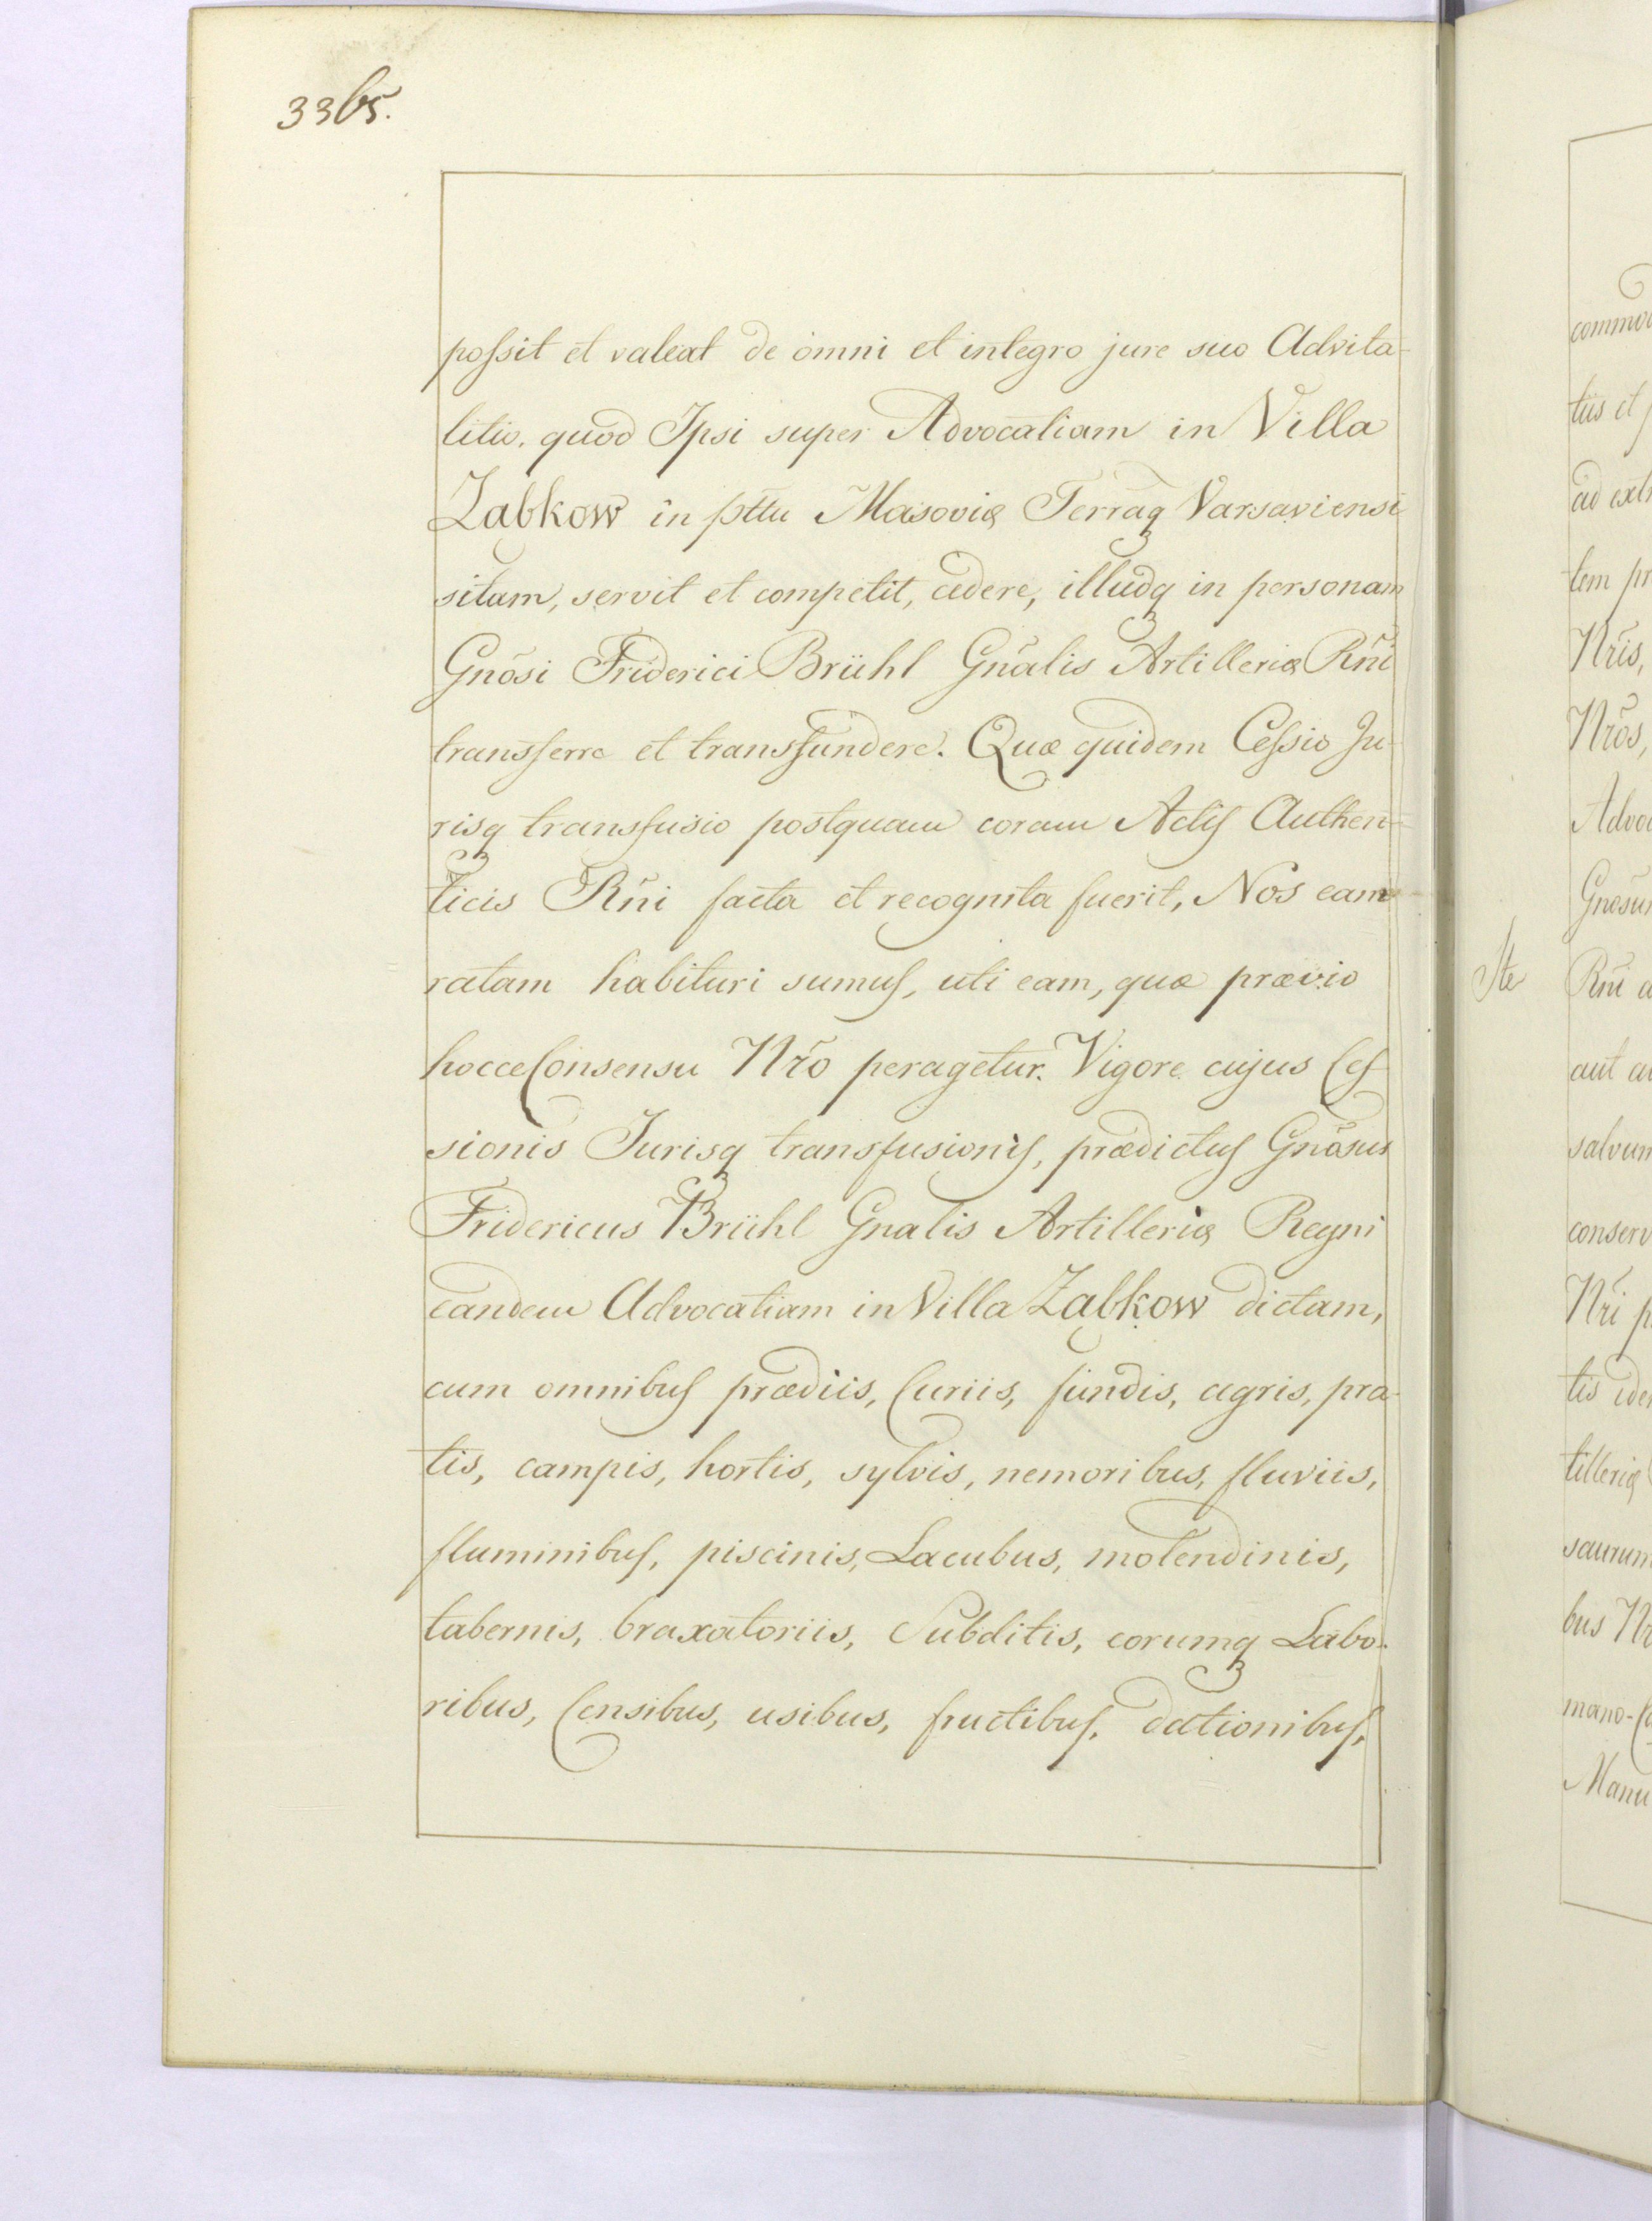 3365.
possit et valeat de omni et integro jure suo Advita-
litio. quod Ipsi super Advocatiam in Villa
Ząbkow in pttu Masoviæ Terraq Varsaviensi
sitam, servit et competit, cedere, illudq in personam
Gnõsi Friderici Brühl Gnãlis Artilleriæ Rñi
transferre et transfundere. Quæ quidem Cessio Ju-
risq transfusio postquam coram Actis Authen-
ticis Rñi facta et recognita fuerit, Nos eam
ratam habituri sumus, uti eam, quæ prævio
hocce Consensu Nrõ peragetur. Vigore cujus Ces-
sionis Jurisq transfusionis, prædictus Gnõsus
Fridericus Brühl Gnalis Artilleriæ Regni
eandem Advocatiam in Villa Ząbkow dictam,
cum omnibus prædiis, Curiis, fundis, agris, pra-
tis, campis, hortis, sylvis, nemoribus, fluviis,
fluminibus, piscinis, Lacubus, molendinis,
tabernis, braxatoriis, Subditis, eorumq Labo-
ribus, Censibus, usibus, fructibus, dationibus,
tiis et
Nrĩs,
Nrõs,
Rñi
aut
Nrĩ
bus